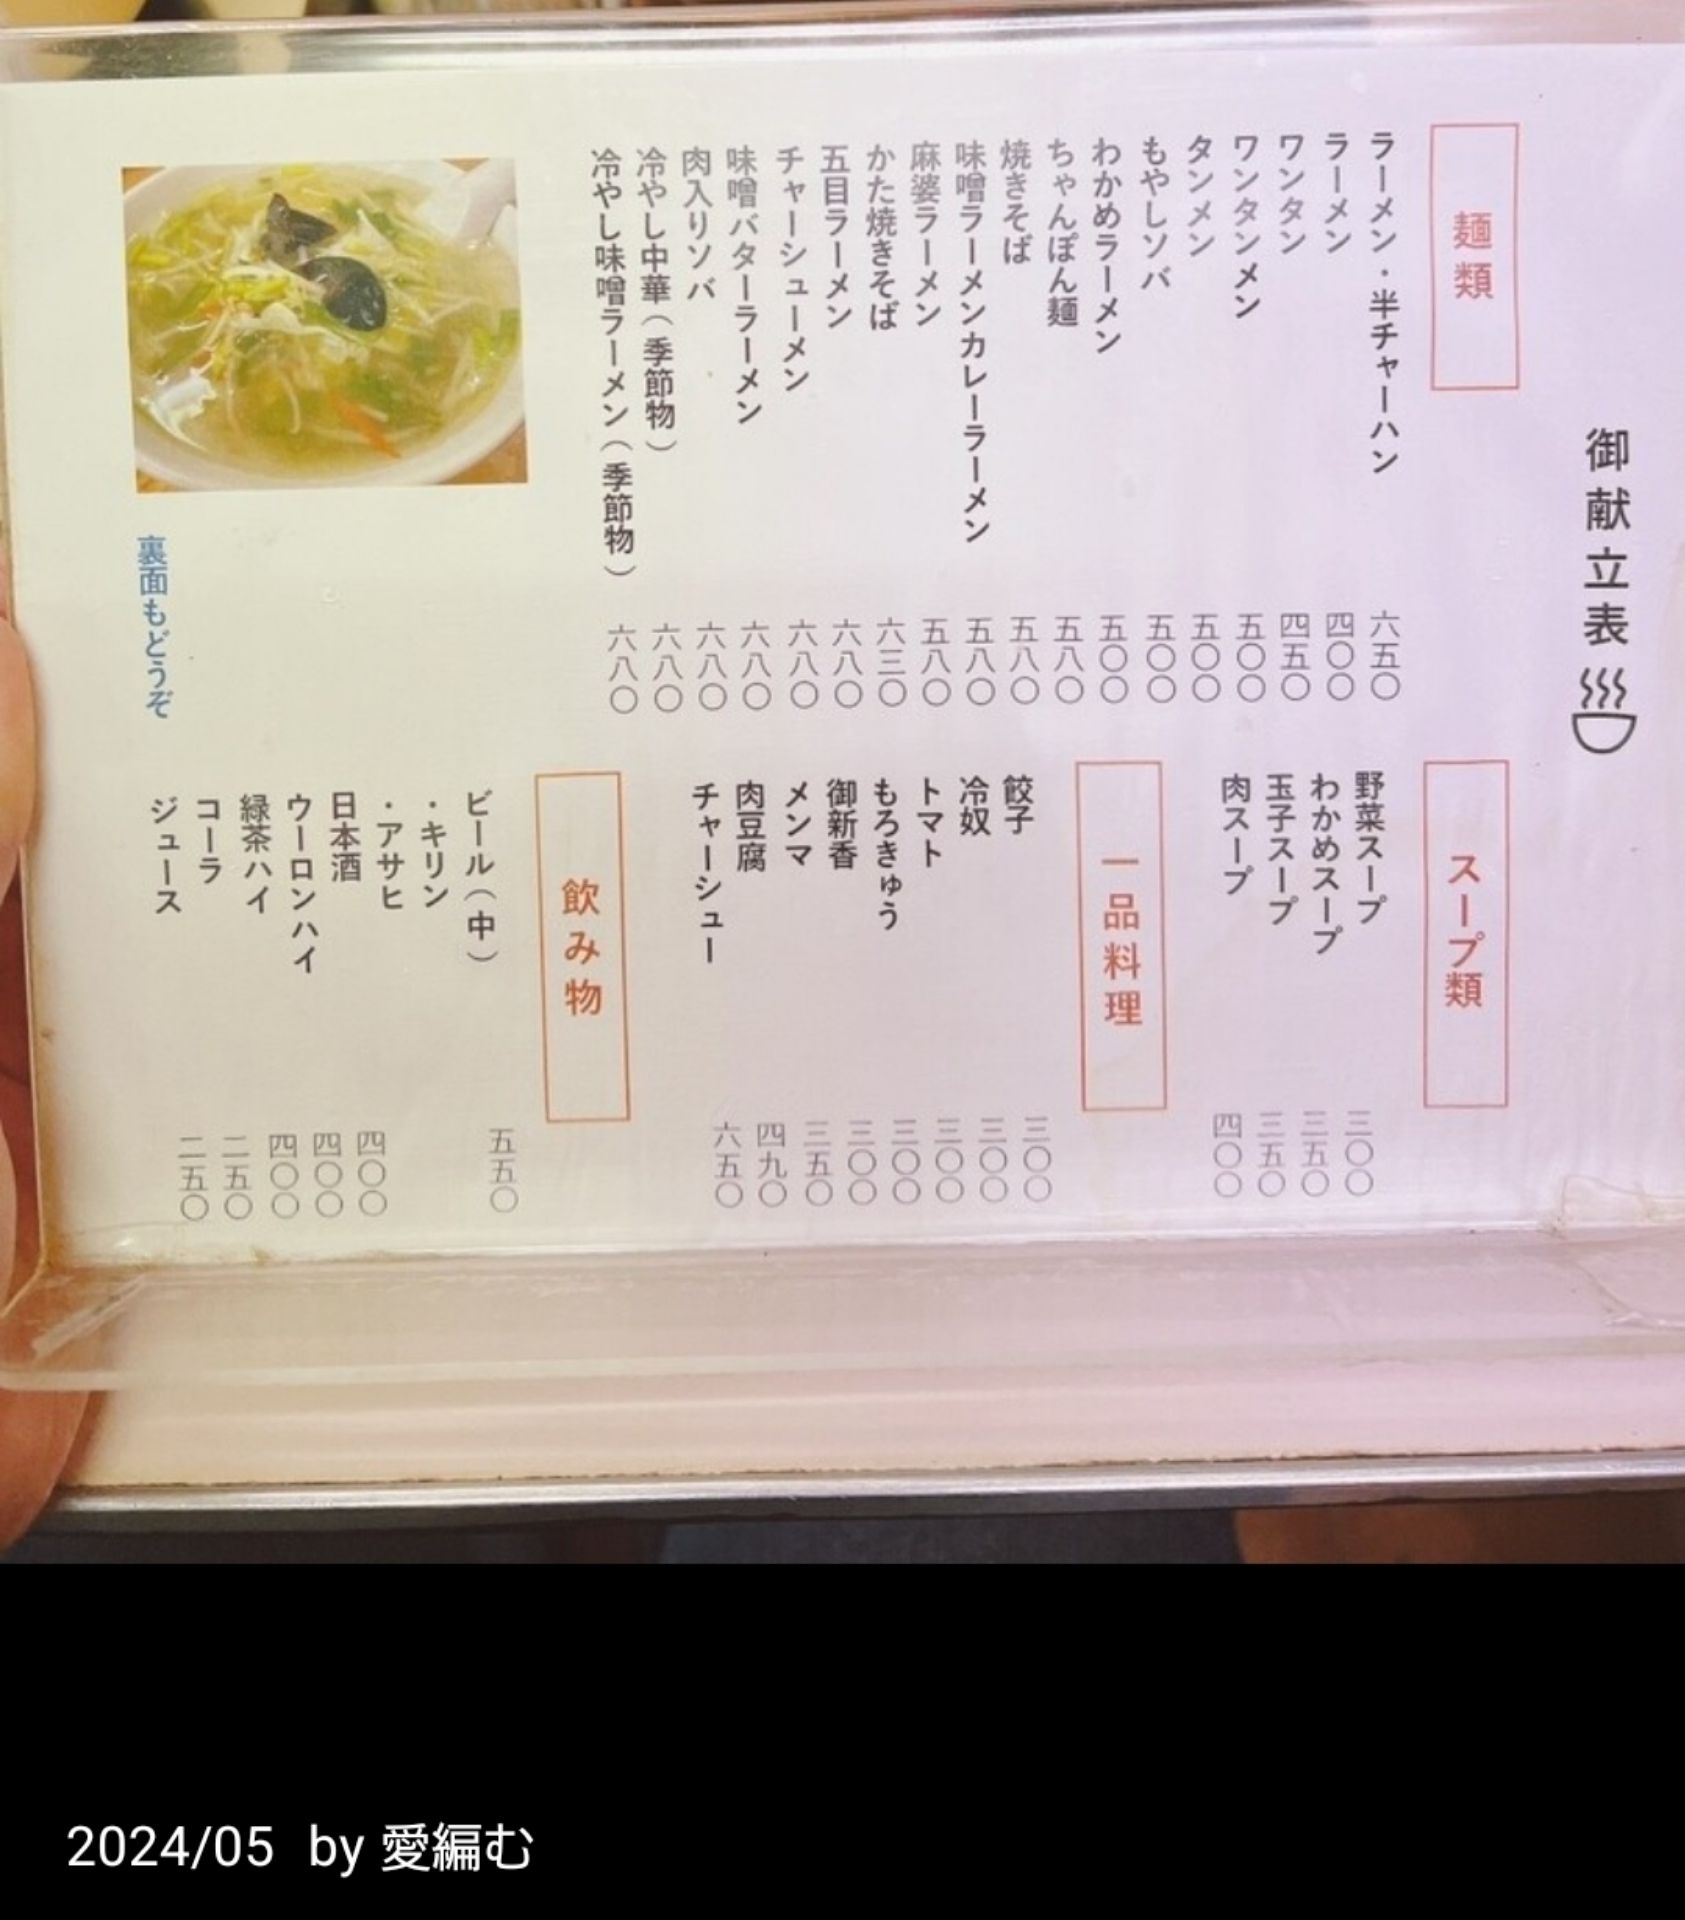 御献立表
麺類
ラーメン・半チャーハン 六五〇
ラーメン 四〇〇
ワンタン 四五〇
ワンタンメン 五〇〇
タンメン 五〇〇
もやしソバ 五〇〇
わかめラーメン 五〇〇
ちゃんぽん麺 五八〇
焼きそば 五八〇
味噌ラーメンカレーラーメン 五八〇
麻婆ラーメン 五八〇
かた焼きそば 六三〇
五目ラーメン 六八〇
チャーシューメン 六八〇
味噌バターラーメン 六八〇
肉入りソバ 六八〇
冷やし中華（季節物） 六八〇
冷やし味噌ラーメン（季節物） 六八〇
スープ類
野菜スープ 三〇〇
わかめスープ 三五〇
玉子スープ 三五〇
肉スープ 四〇〇
一品料理
餃子 三〇〇
冷奴 三〇〇
トマト 三〇〇
もろきゅう 三〇〇
御新香 三〇〇
メンマ 三五〇
肉豆腐 四九〇
チャーシュー 六五〇
飲み物
ビール（中） 五五〇
・キリン
・アサヒ
日本酒 四〇〇
ウーロンハイ 四〇〇
緑茶ハイ 四〇〇
コーラ 二五〇
ジュース 二五〇
裏面もどうぞ
2024/05 by 愛編む